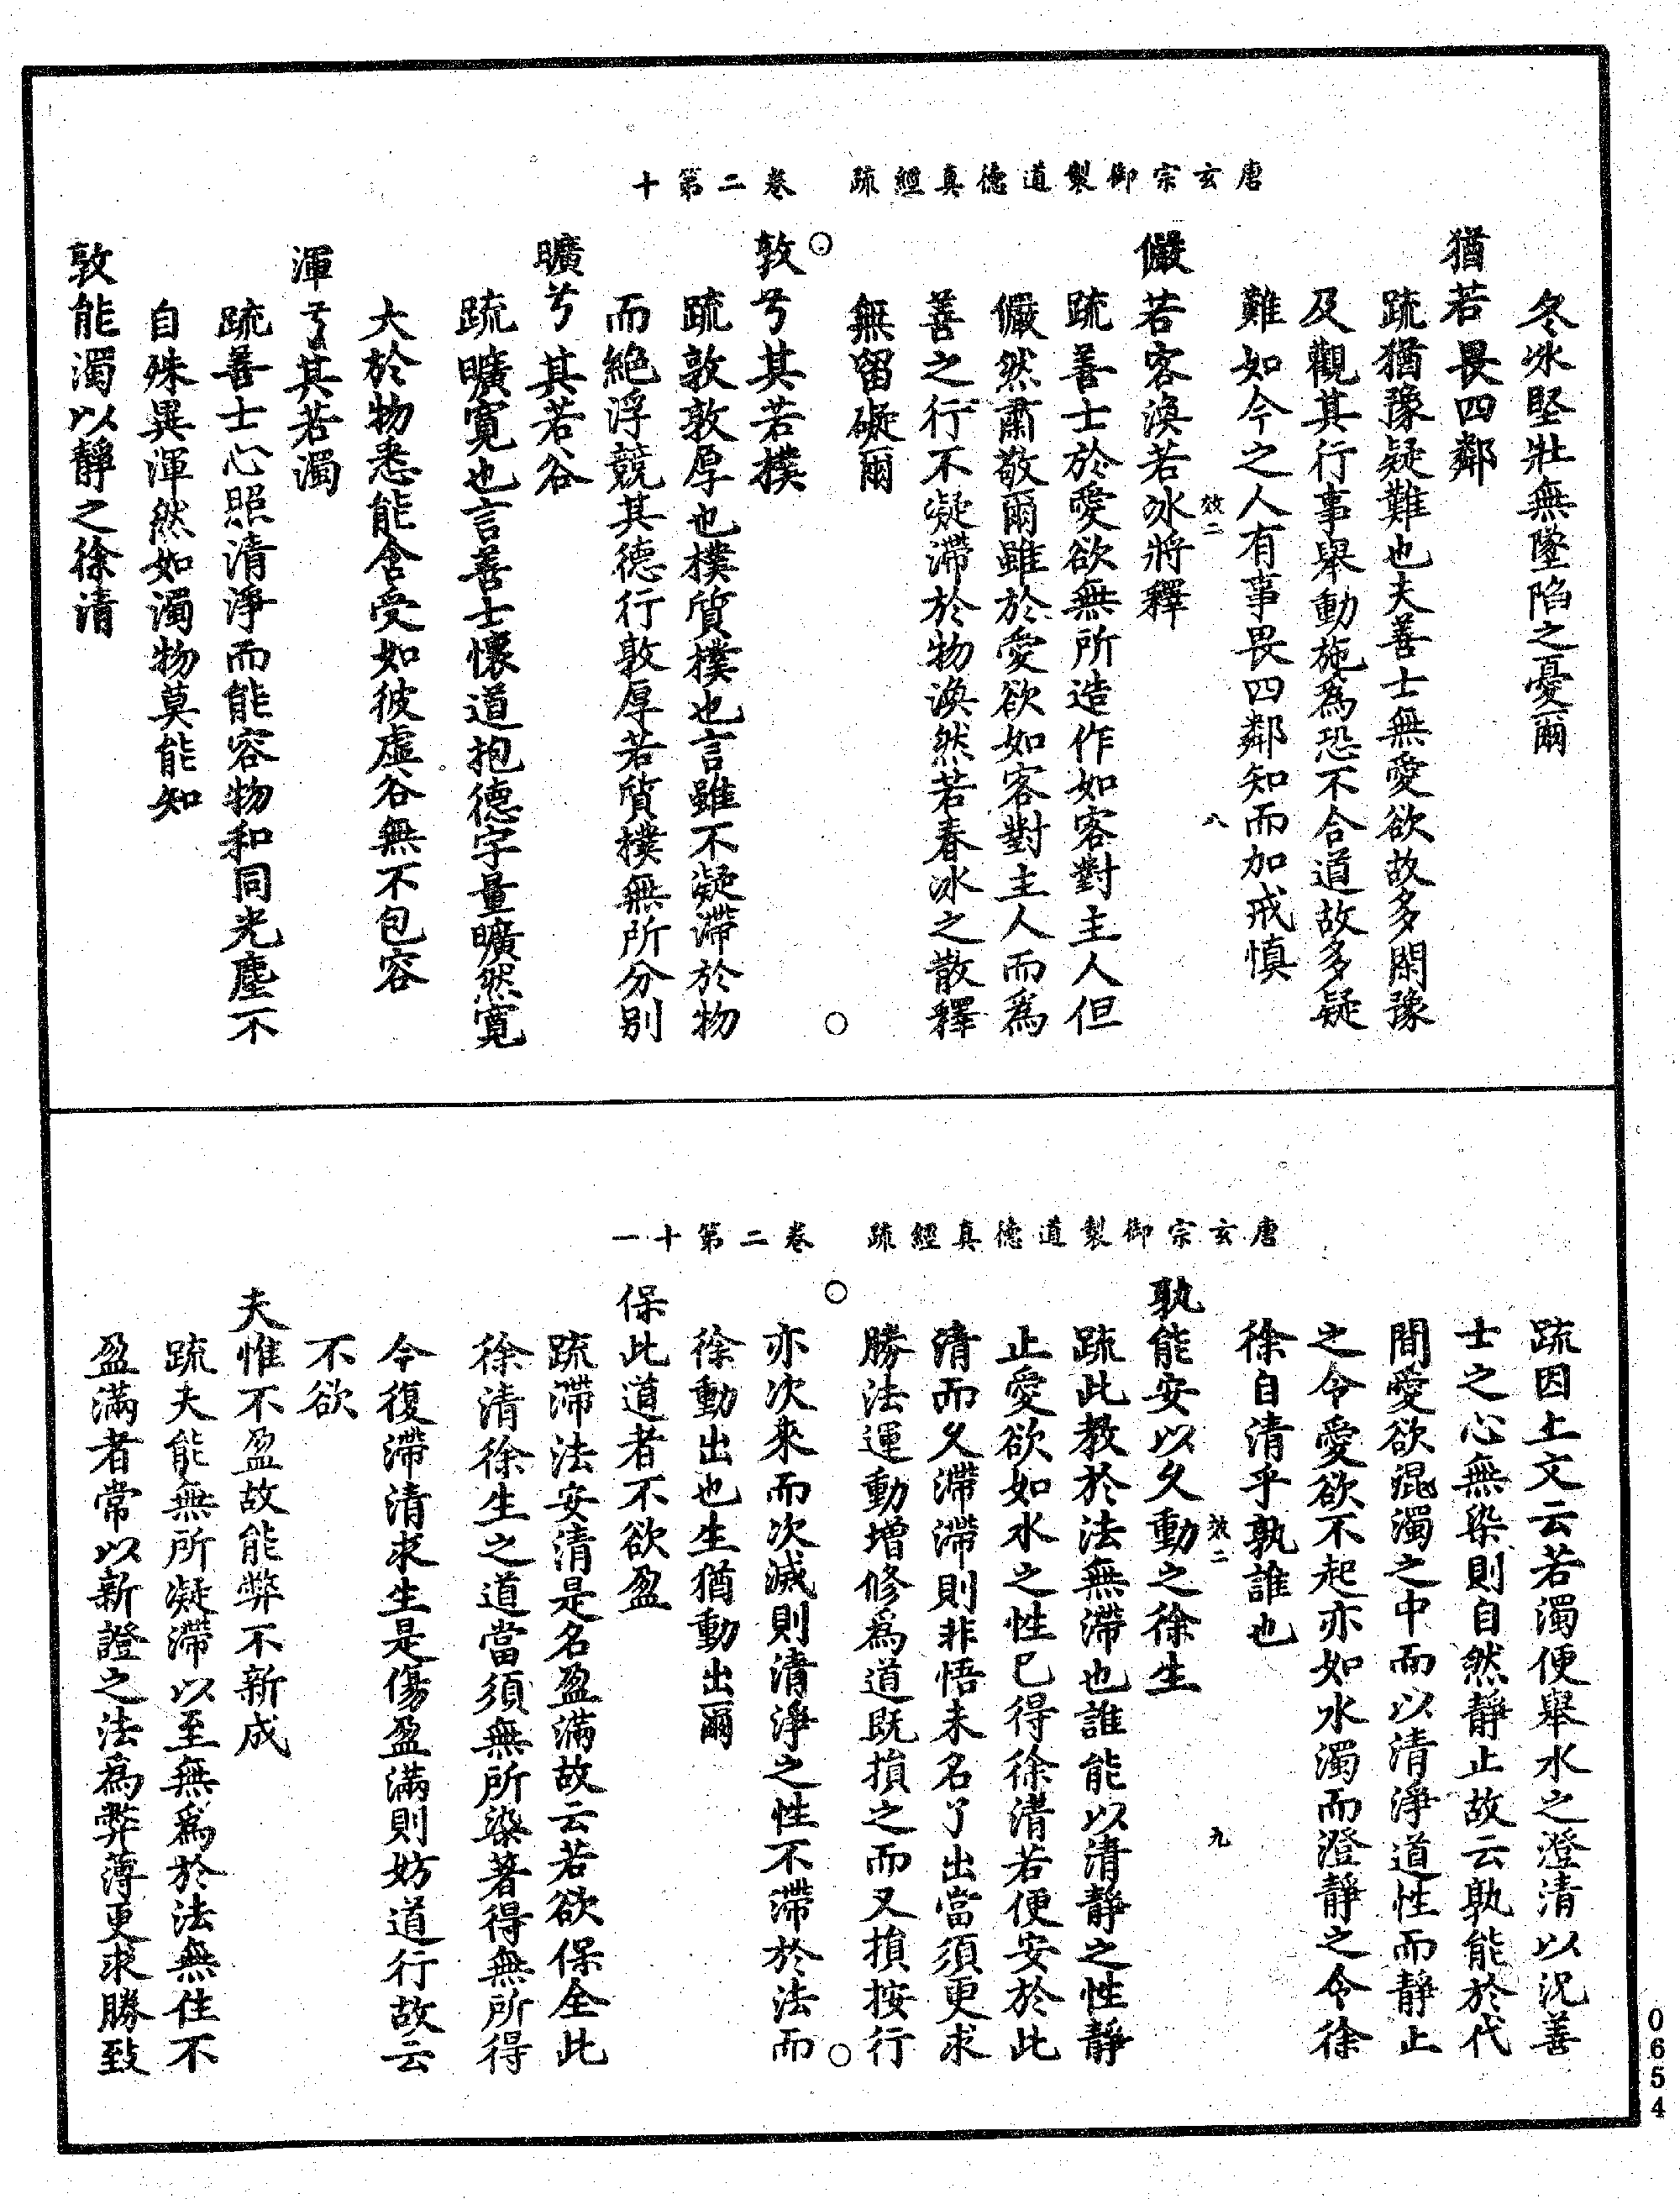 唐玄宗御製道德真經疏　卷二第十
冬冰堅壯無墜陷之憂爾
猶若畏四鄰
疏猶豫疑難也夫善士無愛欲故多閑豫
及觀其行事舉動施為恐不合道故多疑
難如今之人有事畏四鄰知而加戒慎
效二　八
儼若客渙若冰將釋
疏善士於愛欲無所造作如客對主人但
儼然肅敬爾雖於愛欲如客對主人而爲
善之行不凝滯於物渙然若春冰之散釋
無留礙爾
敦兮其若樸
疏敦敦厚也樸質樸也言雖不凝滯於物
而絕浮競其德行敦厚若質樸無所分別
曠兮其若谷
疏曠寬也言善士懷道抱德宇量曠然寬
大於物悉能含受如彼虛谷無不包容
渾兮其若濁
疏善士心照清淨而能容物和同光塵不
自殊異渾然如濁物莫能知
敦能濁以靜之徐清
唐玄宗御製道德真經疏　卷二第十一
疏因上文云若濁便舉水之澄清以況善
士之心無染則自然靜止故云孰能於代
間愛欲混濁之中而以清淨道性而靜止
之令愛欲不起亦如水濁而澄靜之令徐
徐自清乎孰誰也
效二　九
孰能安以久動之徐生
疏此教於法無滯也誰能以清靜之性靜
止愛欲如水之性已得徐清若便安於此
清而久滯滯則非悟未名了出當須更求
勝法運動增修爲道既損之而又損按行
亦次來而次滅則清淨之性不滯於法而
徐動出也生猶動出爾
保此道者不欲盈
疏滯法安清是名盈滿故云若欲保全此
徐清徐生之道當須無所染著得無所得
今復滯清求生是傷盈滿則妨道行故云
不欲
夫惟不盈故能弊不新成
疏夫能無所凝滯以至無爲於法無住不
盈滿者常以新證之法爲弊薄更求勝致
0654